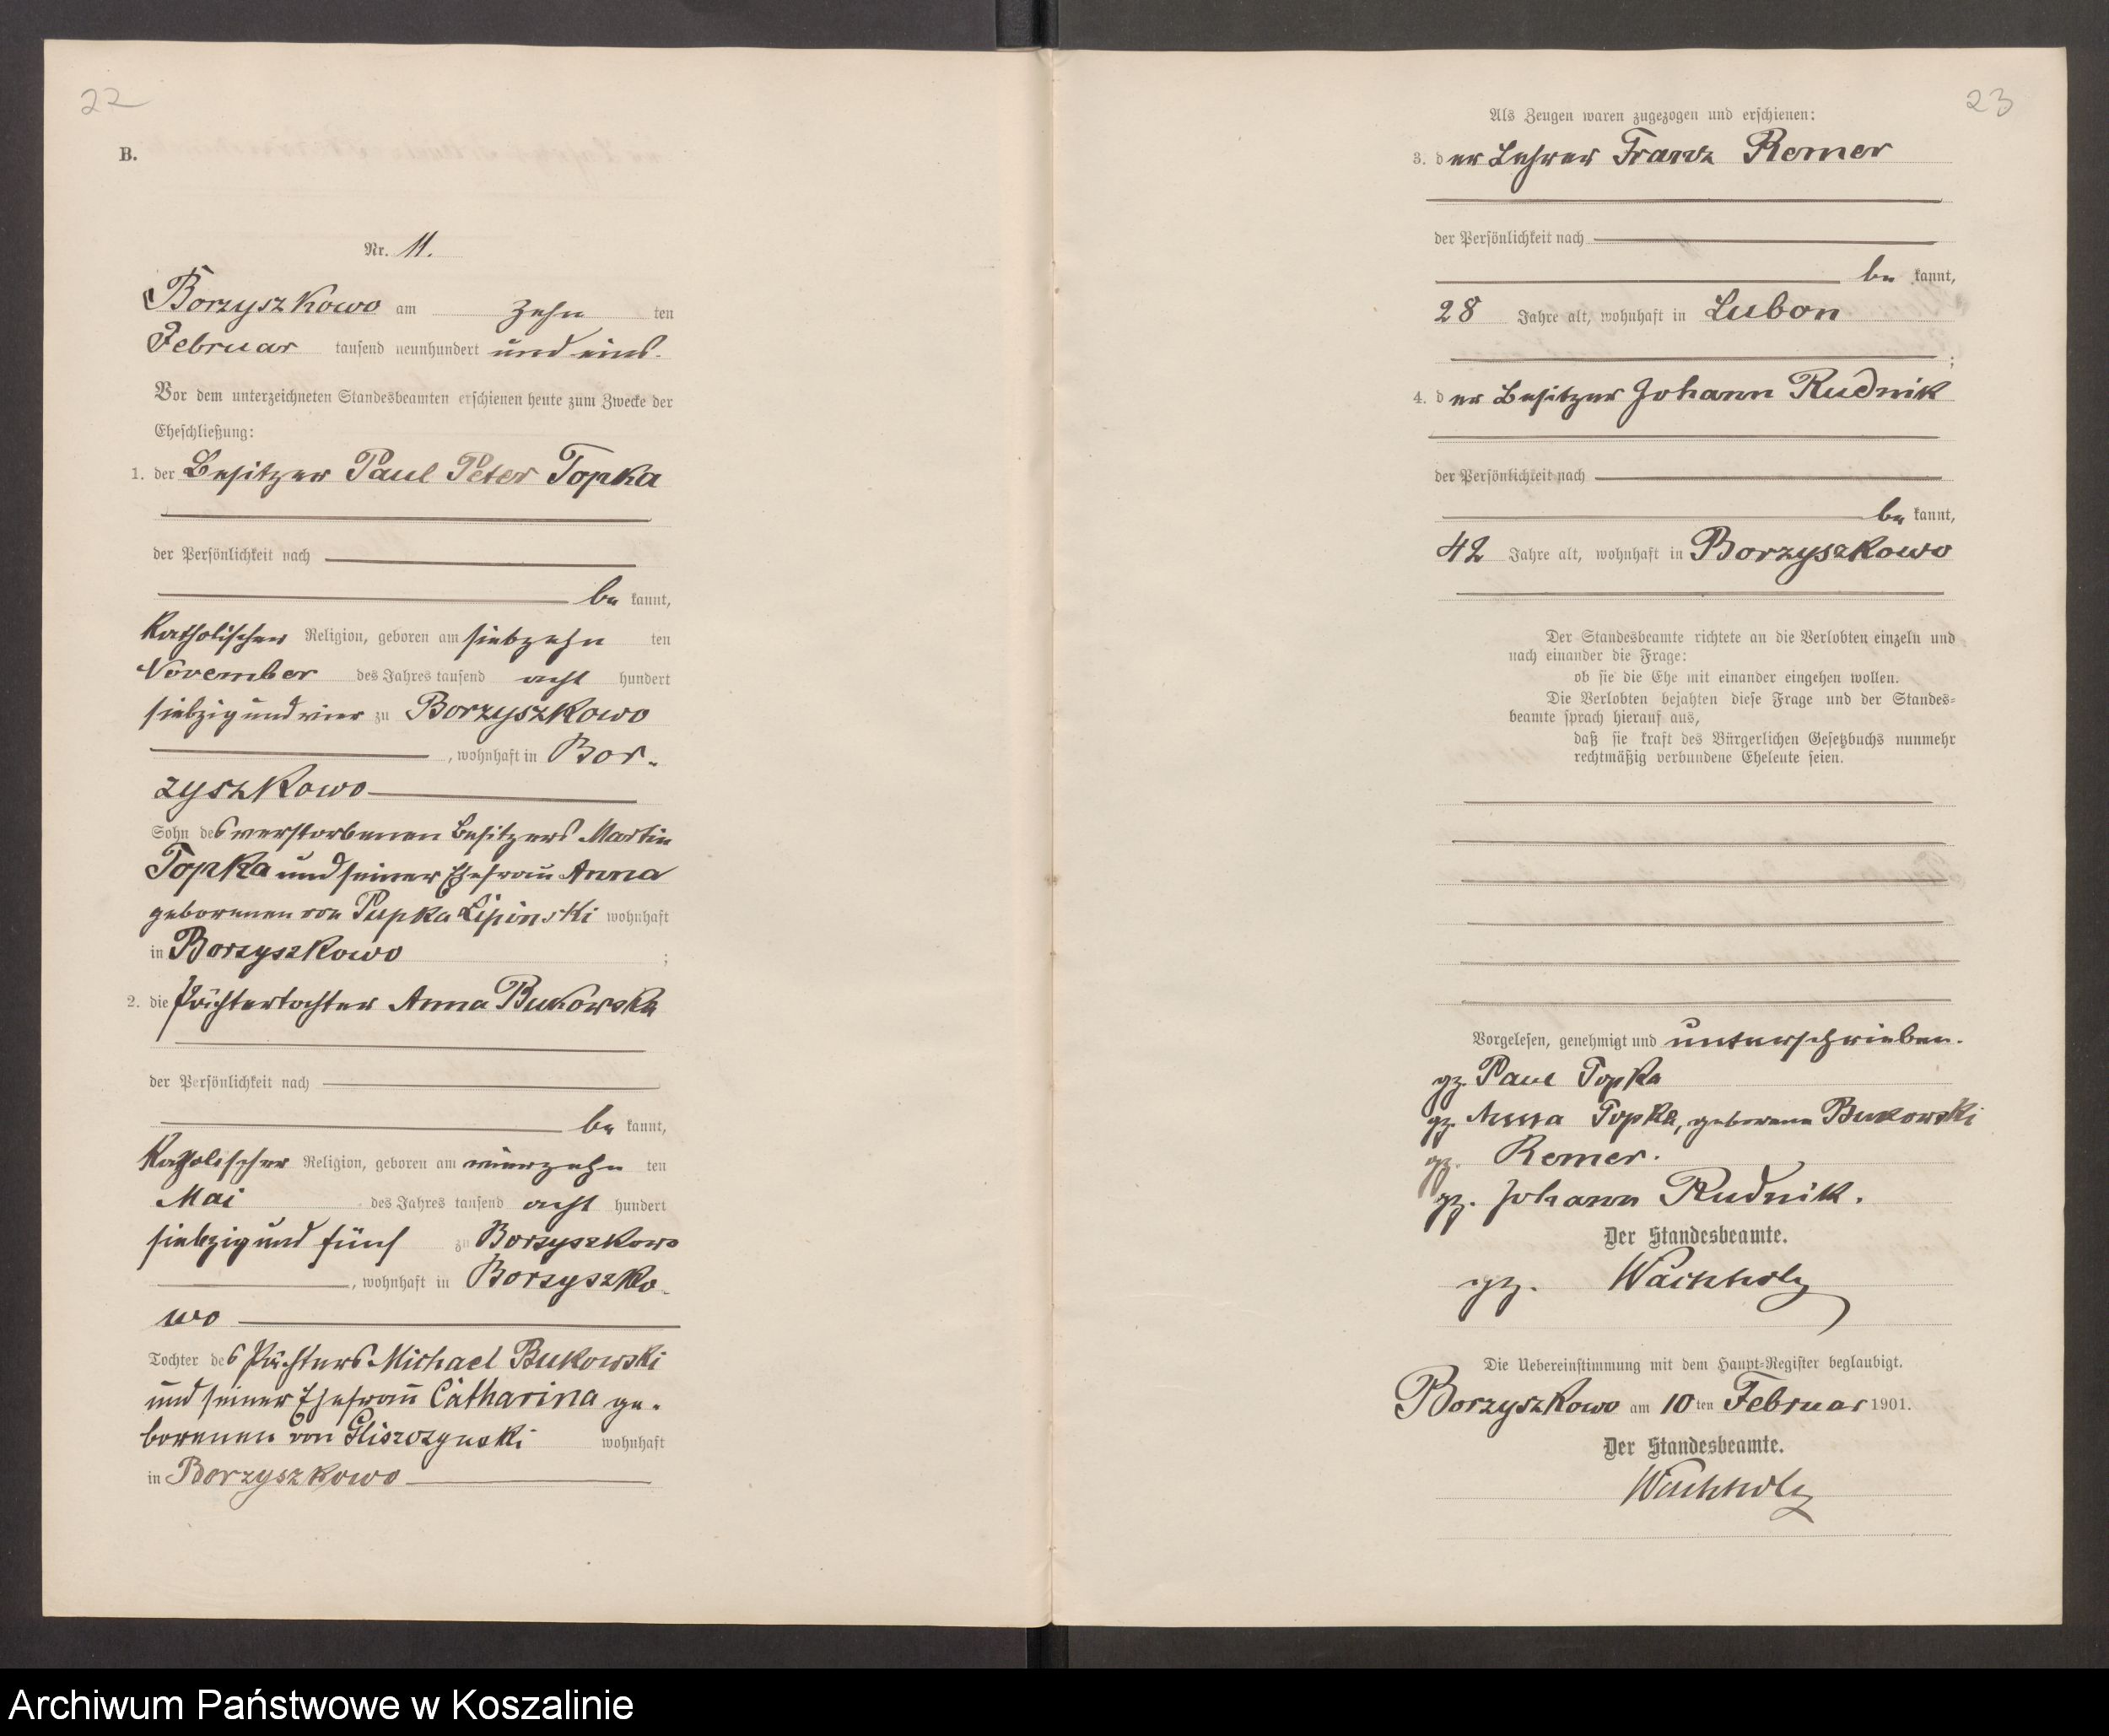 22
B.
Nr. 11.
Borzyszkowo am zehn ten
Februar tausend neunhundert und eins.
Vor dem unterzeichneten Standesbeamten erschienen heute zum Zwecke der
Eheschließung:
1. der Besitzer Paul Peter Topka
der Persönlichkeit nach
be kannt,
katholischer Religion, geboren am siebzehn ten
November des Jahres tausend acht hundert
siebzig und vier zu Borzyszkowo
, wohnhaft in Bor-
zyszkowo
Sohn des verstorbenen Besitzers Martin
Topka und seiner Ehefrau Anna
geborenen von Pupka Lipinski wohnhaft
in Borzyszkowo ;
2. die Pächtertochter Anna Bukowska
der Persönlichkeit nach
be kannt,
katholischer Religion, geboren am vierzehn ten
Mai des Jahres tausend acht hundert
siebzig und fünf zu Borzyszkowo
, wohnhaft in Borzyszko-
wo
Tochter des Pächters Michael Bukowski
und seiner Ehefrau Catharina ge-
borenen von Gliszczynski wohnhaft
in Borzyszkowo
23
Als Zeugen waren zugezogen und erschienen:
3. der Lehrer Franz Remer
der Persönlichkeit nach
be kannt,
28 Jahre alt, wohnhaft in Lubon
;
4. der Besitzer Johann Rudnik
der Persönlichkeit nach
be kannt,
42 Jahre alt, wohnhaft in Borzyszkowo
Der Standesbeamte richtete an die Verlobten einzeln und
nach einander die Frage:
ob sie die Ehe mit einander eingehen wollen.
Die Verlobten bejahten diese Frage und der Standes-
beamte sprach hierauf aus,
daß sie kraft des Bürgerlichen Gesetzbuchs nunmehr
rechtmäßig verbundene Eheleute seien.
Vorgelesen, genehmigt und unterschrieben.
gz. Paul Topka
gz. Anna Topka, geborene Bukowski
gz. Remer.
gz. Johann Rudnik.
Der Standesbeamte.
gz. Wachholz
Die Uebereinstimmung mit dem Haupt-Register beglaubigt.
Borzyszkowo am 10 ten Februar 1901.
Der Standesbeamte.
Wachholz
Archiwum Państwowe w Koszalinie